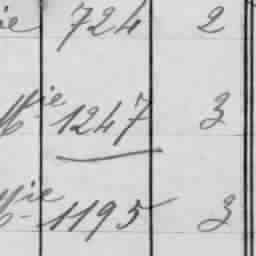 ie 724 2
Mie 1247 3
Mie 1195 3